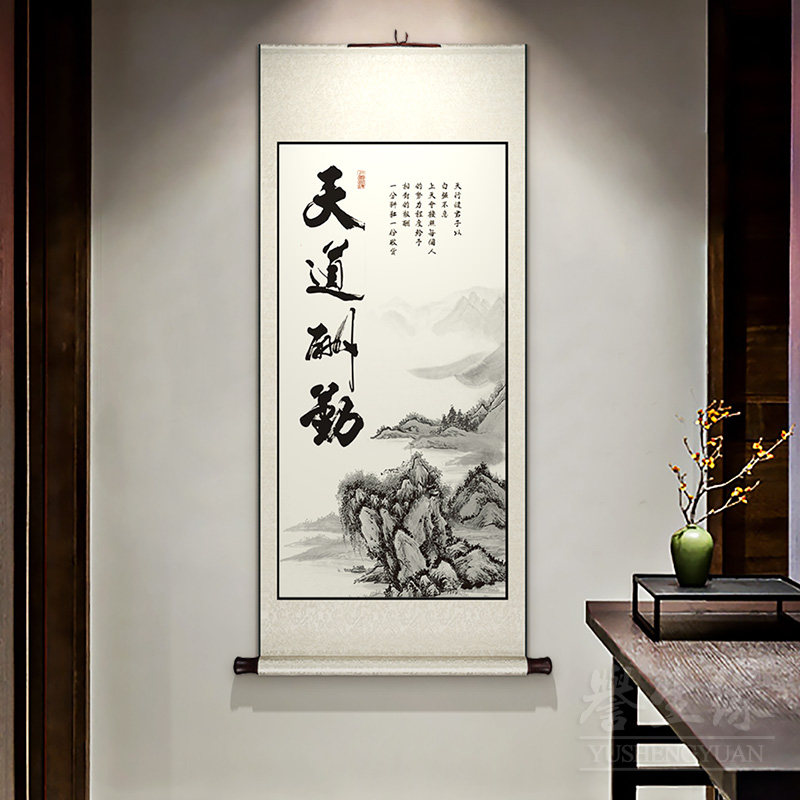 天道酬勤
天行健君子以
自强不息
上天會按照每個人
的努力程度給予
相對的报酬
一分耕耘一份收货
誉生源
YUSHENGYUAN